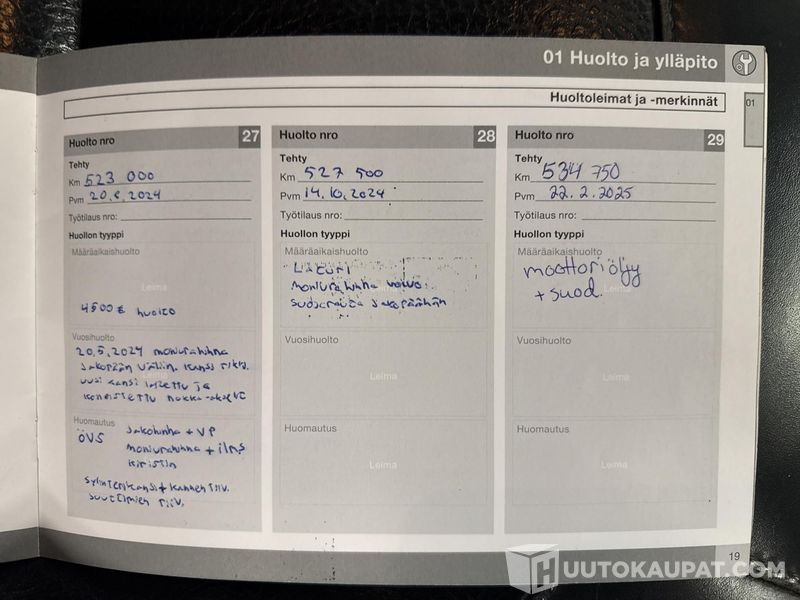 01 Huolto ja ylläpito
01
Huoltoleimat ja -merkinnät
Huolto nro 27
Tehty
Km 523 000
Pvm 20.6.2024
Työtilaus nro:
Huollon tyyppi
Määräaikaishuolto
Leima
4500 € huolto
Vuosihuolto
20.5.2024 moniurahihna
jakopään väliin. kansi rikki.
uusi kansi laitettu ja
koneistettu nokka-akselit
Leima
Huomautus
ÖVS jakohihna + VP
moniurahihna + ilns
kiristin
Leima
Sylinterikansi + kannen tiiv.
suuttimien tiiv.
Huolto nro 28
Tehty
Km 527 500
Pvm 14.10.2024
Työtilaus nro:
Huollon tyyppi
Määräaikaishuolto
Laturi
moniurahihna volvo
jakopäähän
Vuosihuolto
Leima
Huomautus
Leima
Huolto nro 29
Tehty
Km 534 750
Pvm 22.2.2025
Työtilaus nro:
Huollon tyyppi
Määräaikaishuolto
moottoriöljy
+ suod.
Leima
Vuosihuolto
Leima
Huomautus
Leima
19
HUUTOKAUPAT.COM